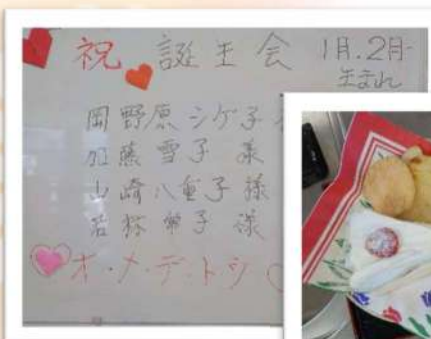 祝 誕生会 1月.2月
生まれ
岡野原シゲ子
加藤雪子 様
山崎八重子 様
若林 子 様
オ・メ・デ・トウ